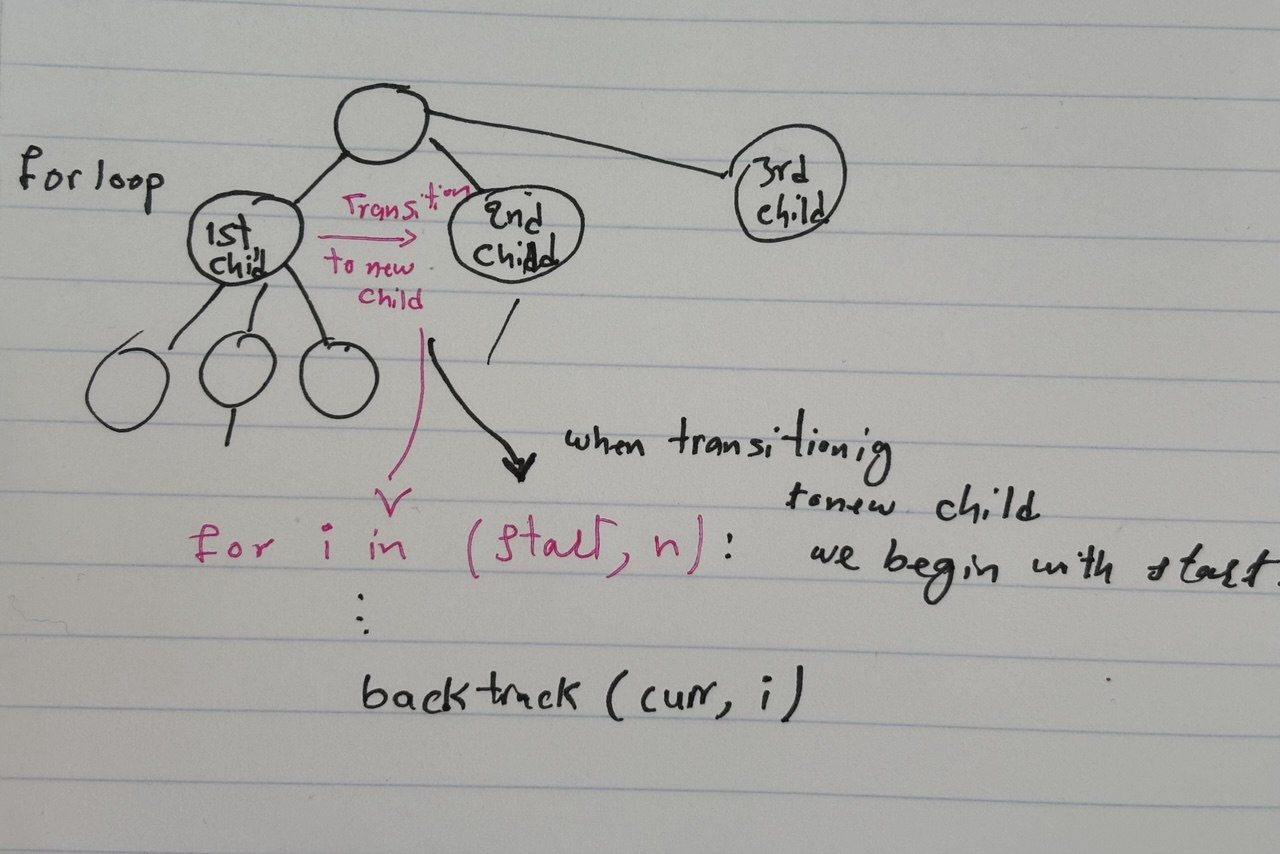 for loop
1st
chid
Transition
to new
child
2nd
child
3rd
child
when transitionig
to new child
for i in (start, n):
we begin with start.
:
backtrack (curr, i)